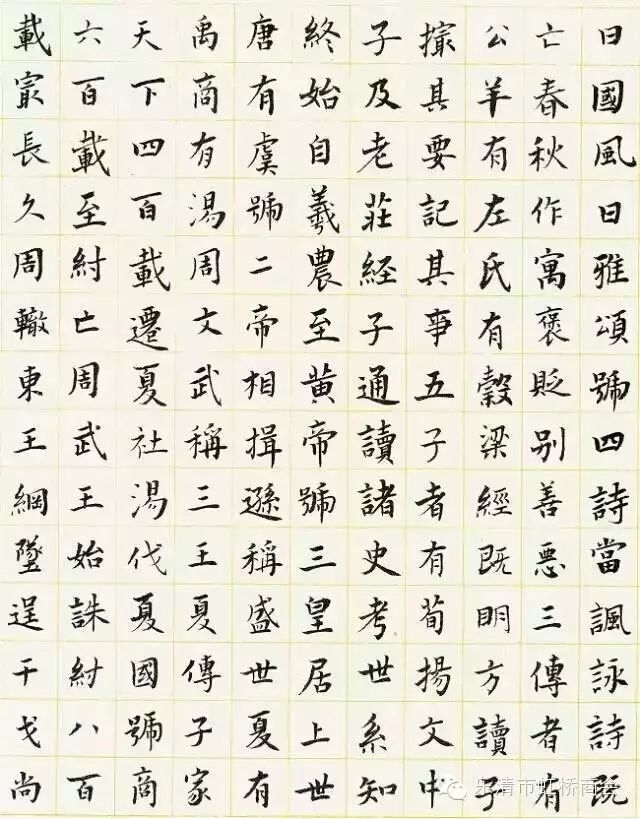 曰國風曰雅頌號四詩當諷詠詩既
亡春秋作寓褒貶别善惡三傳者有
公羊有左氏有穀梁經既明方讀子
撮其要記其事五子者有荀揚文中
子及老莊經子通讀諸史考世系知
終始自羲農至黃帝號三皇居上世
唐有虞號二帝相揖遜稱盛世夏有
禹商有湯周文武稱三王夏傳子家
天下四百載遷夏社湯伐夏國號商
六百載至紂亡周武王始誅紂八百
載最長久周轍東王綱墜逞干戈尚
乐清市虹桥商会